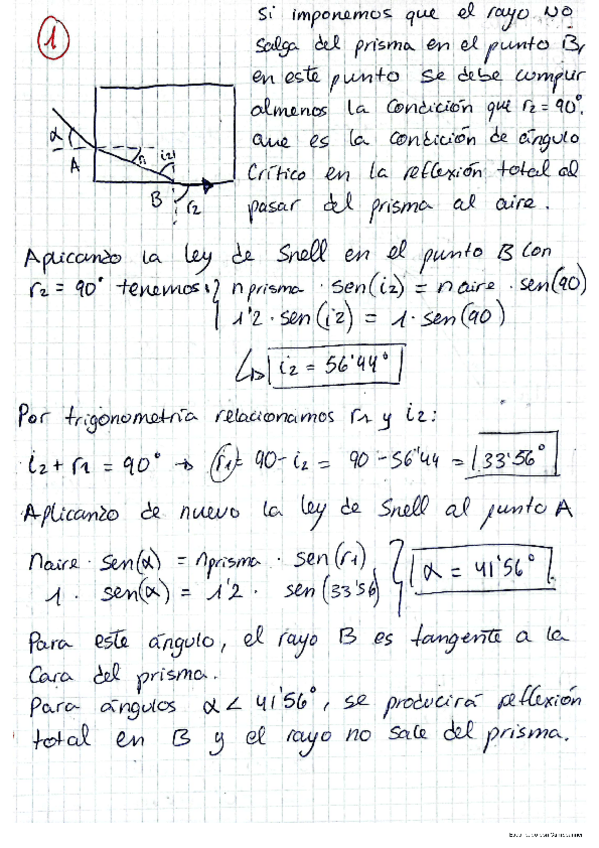 1
Si imponemos que el rayo NO
salga del prisma en el punto B,
en este punto se debe cumpur
almenos la condición que r2 = 90°.
que es la condición de ángulo
crítico en la reflexión total al
pasar del prisma al aire.
α
A
r1
i2
B
r2
Aplicanzo la ley de Snell en el punto B con
r2 = 90° tenemos: nprisma · sen(i2) = naire · sen(90)
1'2 · sen(i2) = 1 · sen(90)
i2 = 56'44°
Por trigonometría relacionamos r1 y i2:
i2 + r1 = 90° → r1 = 90 - i2 = 90 - 56'44 = 33'56°
Aplicanzo de nuevo la ley de Snell al punto A
naire · sen(α) = nprisma · sen(r1)
1 · sen(α) = 1'2 · sen(33'56)
α = 41'56°
Para este ángulo, el rayo B es tangente a la
cara del prisma.
Para ángulos α < 41'56°, se producirá reflexión
total en B y el rayo no sale del prisma.